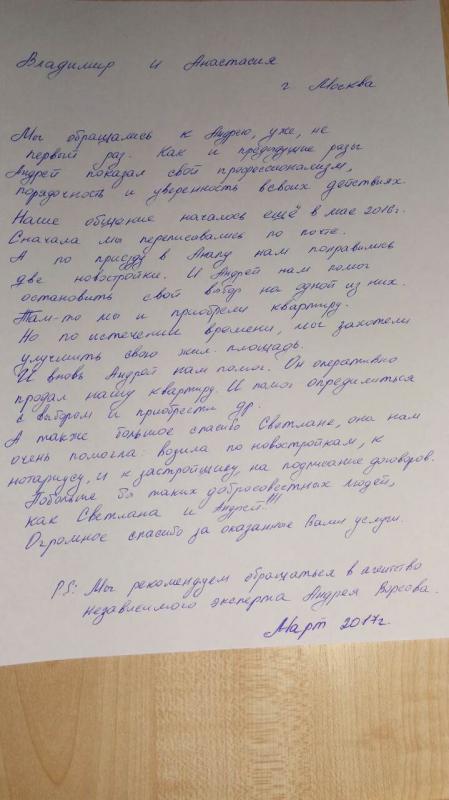 Владимир и Анастасия
г Москва
Мы обращались к Андрею, уже, не
первый раз. Как и предыдущие разы
Андрей показал свой профессионализм,
порядочность и уверенность в своих действиях.
Наше общение началось ещё в мае 2016г.
Сначала мы переписывались по почте.
А по приезду в Анапу нам понравились
две новостройки. И Андрей нам помог
остановить свой выбор на одной из них.
Там-то мы и приобрели квартиру.
Но по истечении времени, мы захотели
улучшить свою жил. площадь.
И вновь Андрей нам помог. Он оперативно
продал нашу квартиру. И помог определиться
с выбором и приобрести др.
А также большое спасибо Светлане, она нам
очень помогла: возила по новостройкам, к
нотариусу, и к застройщику, на подписание договоров.
Побольше бы таких добросовестных людей,
как Светлана и Андрей!!!
Огромное спасибо за оказанные Вами услуги.
P.S: Мы рекомендуем обращаться в агенство
независимого эксперта Андрея
Март 2017г.